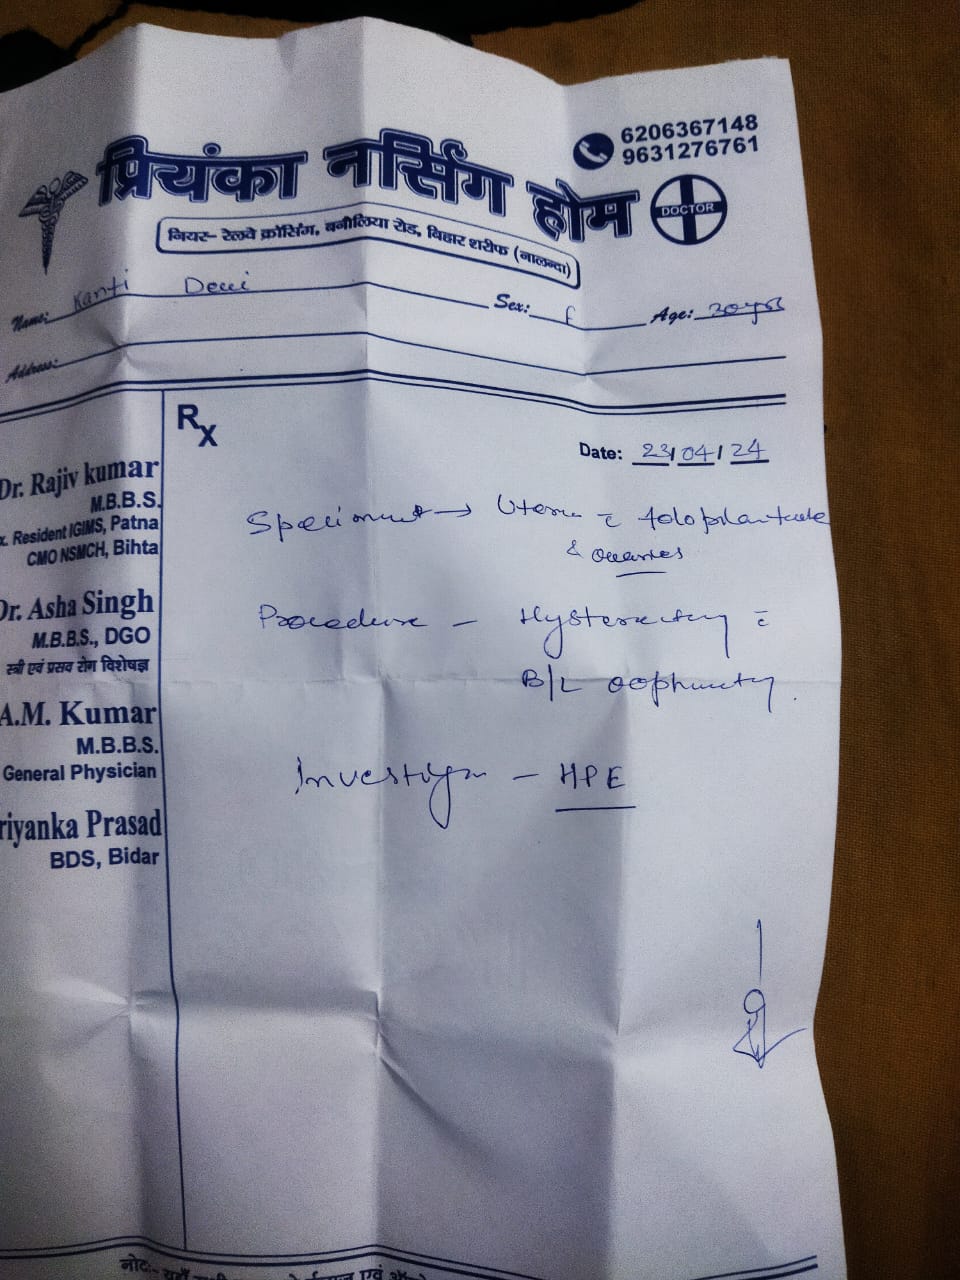 6206367148
9631276761
प्रियंका नर्सिंग होम
DOCTOR
नियर- रेलवे क्रोसिंग, बनौलिया रोड, बिहार शरीफ (नालन्दा)
Name: Kanti Devi Sex: F Age: 30 yrs
Address:
Rx
Date: 23/04/24
Dr. Rajiv kumar
M.B.B.S.
x. Resident IGIMS, Patna
CMO NSMCH, Bihta
Dr. Asha Singh
M.B.B.S., DGO
स्त्री एवं प्रसव रोग विशेषज्ञ
A.M. Kumar
M.B.B.S.
General Physician
riyanka Prasad
BDS, Bidar
→ c̄
& ovaries
Procedure - Hysterectomy c̄
B/L
- HPE
नोट:- यहाँ एवं